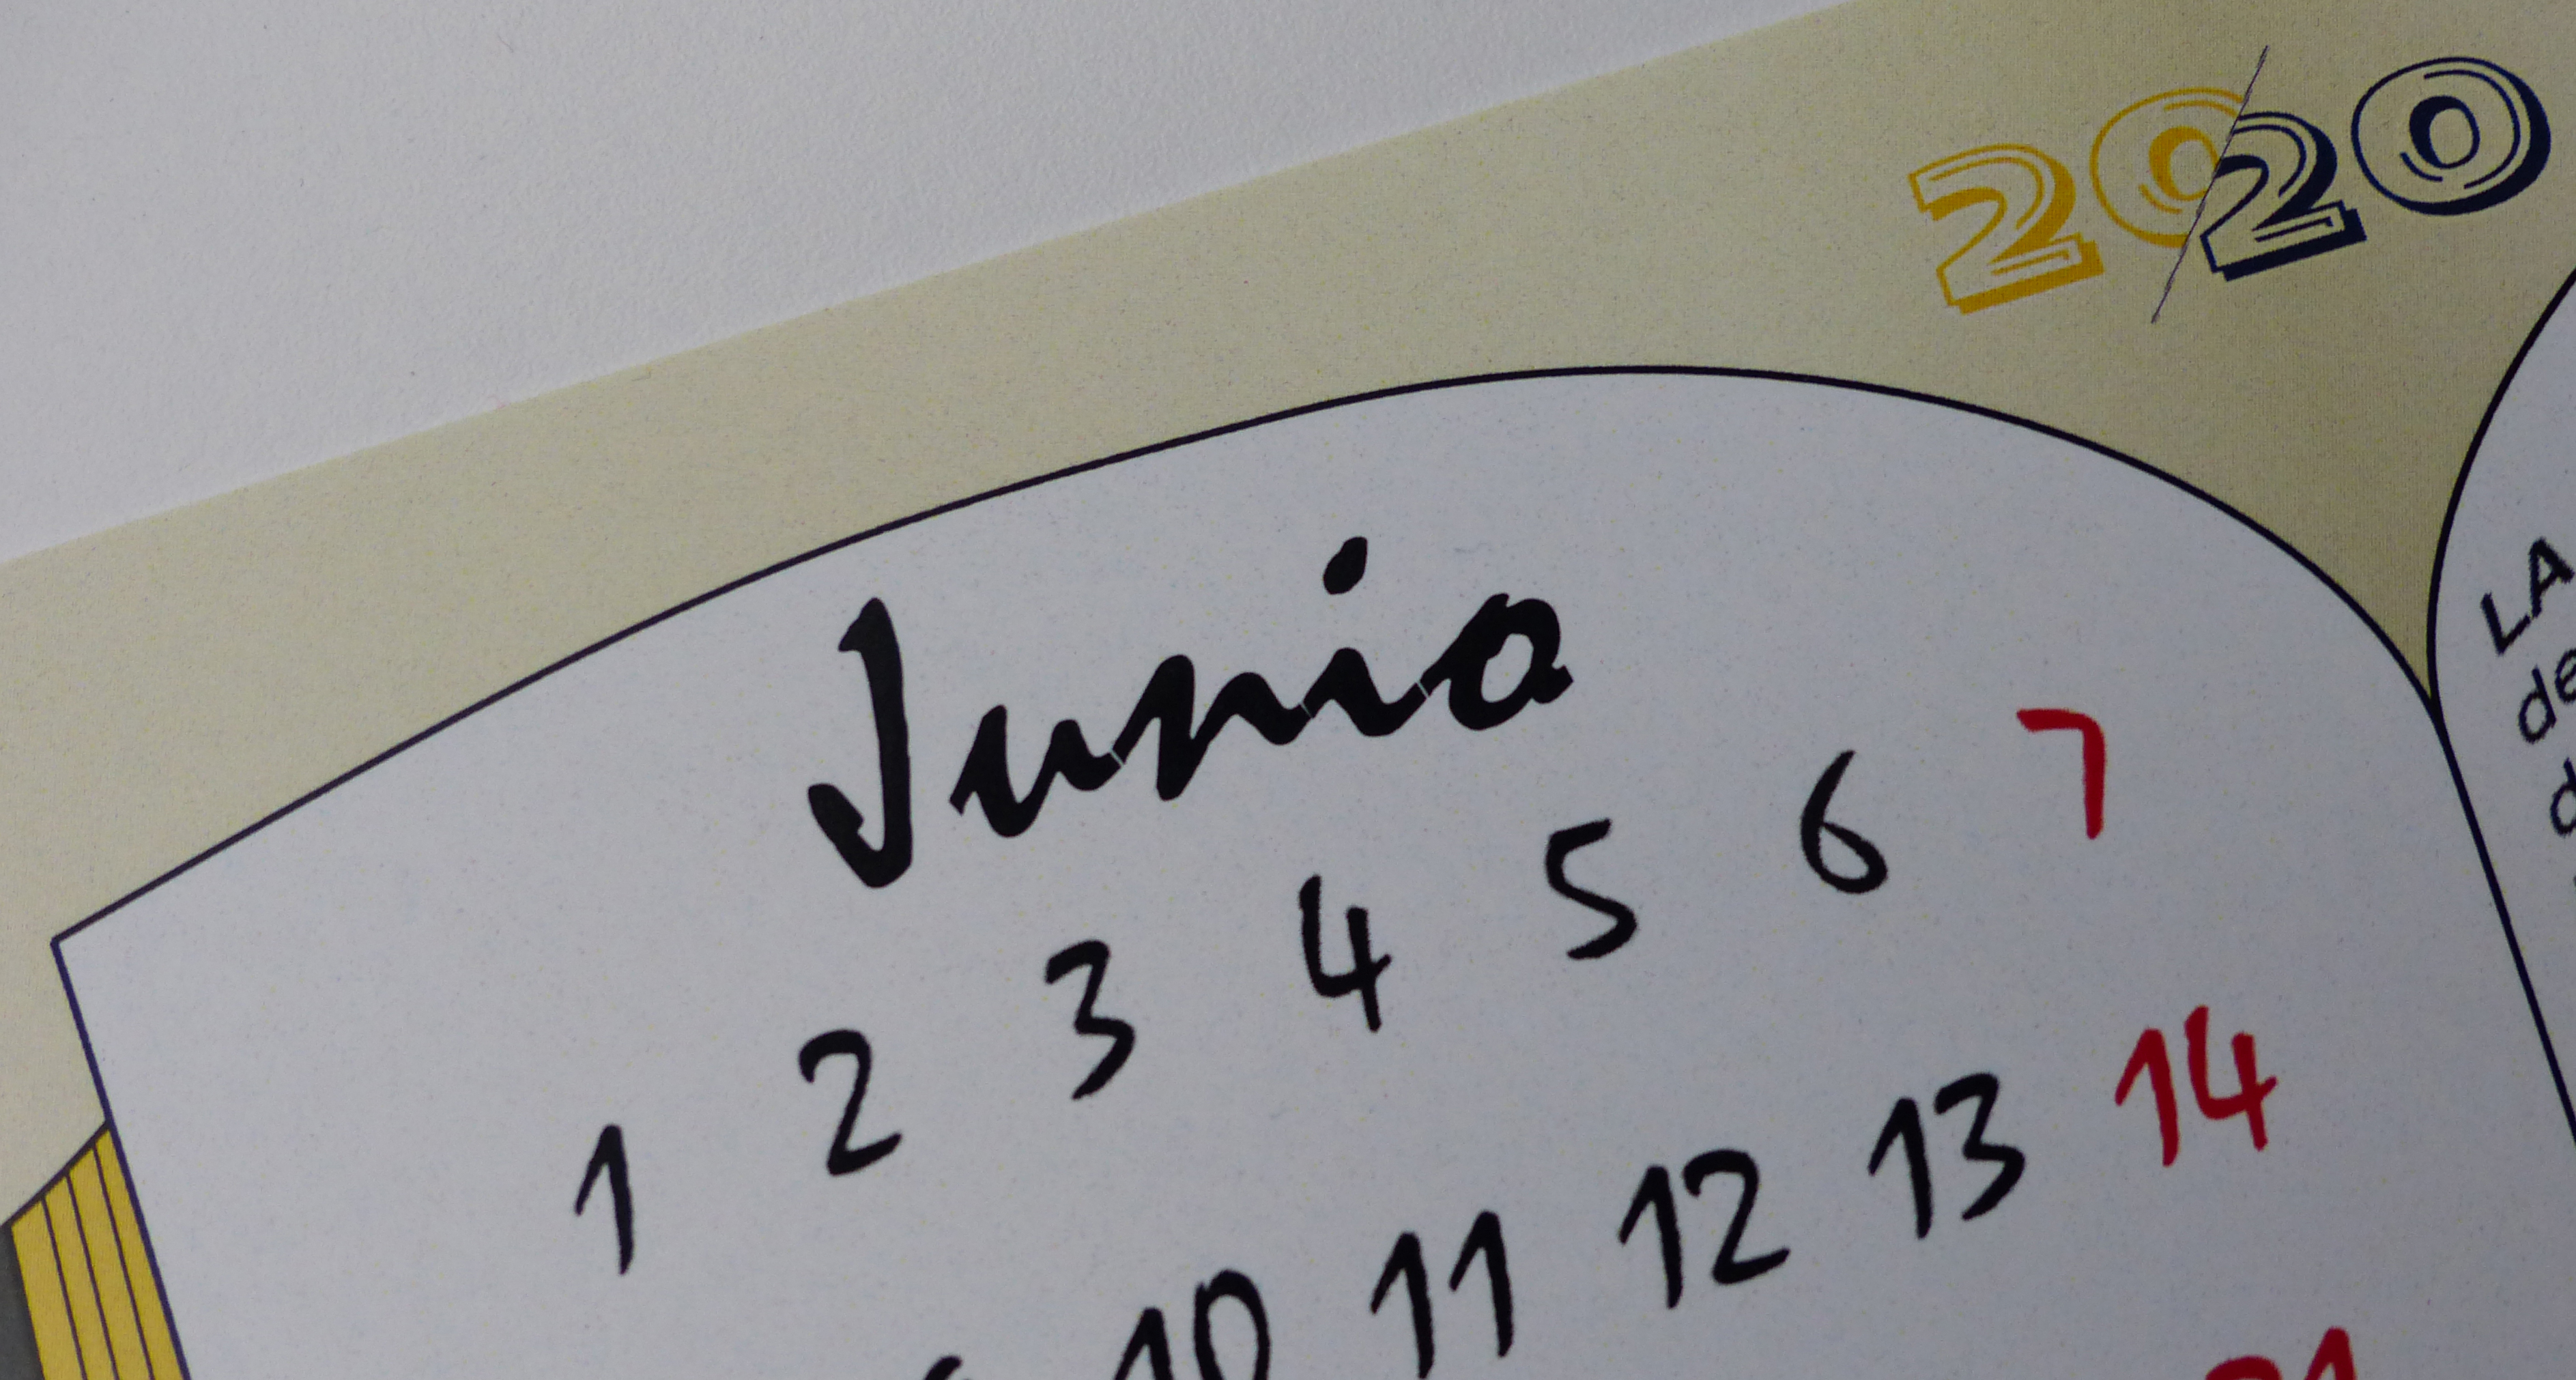 2020
Junio
1 2 3 4 5 6 7
10 11 12 13 14
21
LA
de
d